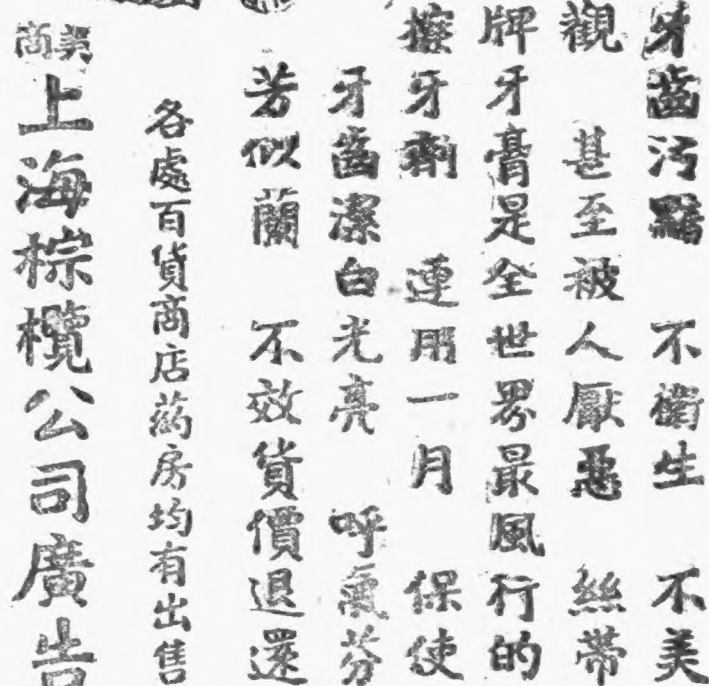 牙齒污點 不衛生 不美
觀 甚至被人厭惡 絲帶
牌牙膏是全世界最風行的
擦牙劑 連用一月 保使
牙齒潔白光亮 呼氣芬
芳似蘭 不效貨價退還
各處百貨商店葯房均有出售
美商上海棕欖公司廣告